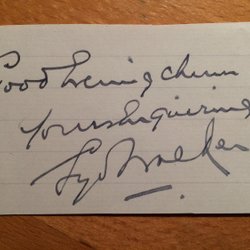 Good Evening chums
yours Enquiring
Syd Walker